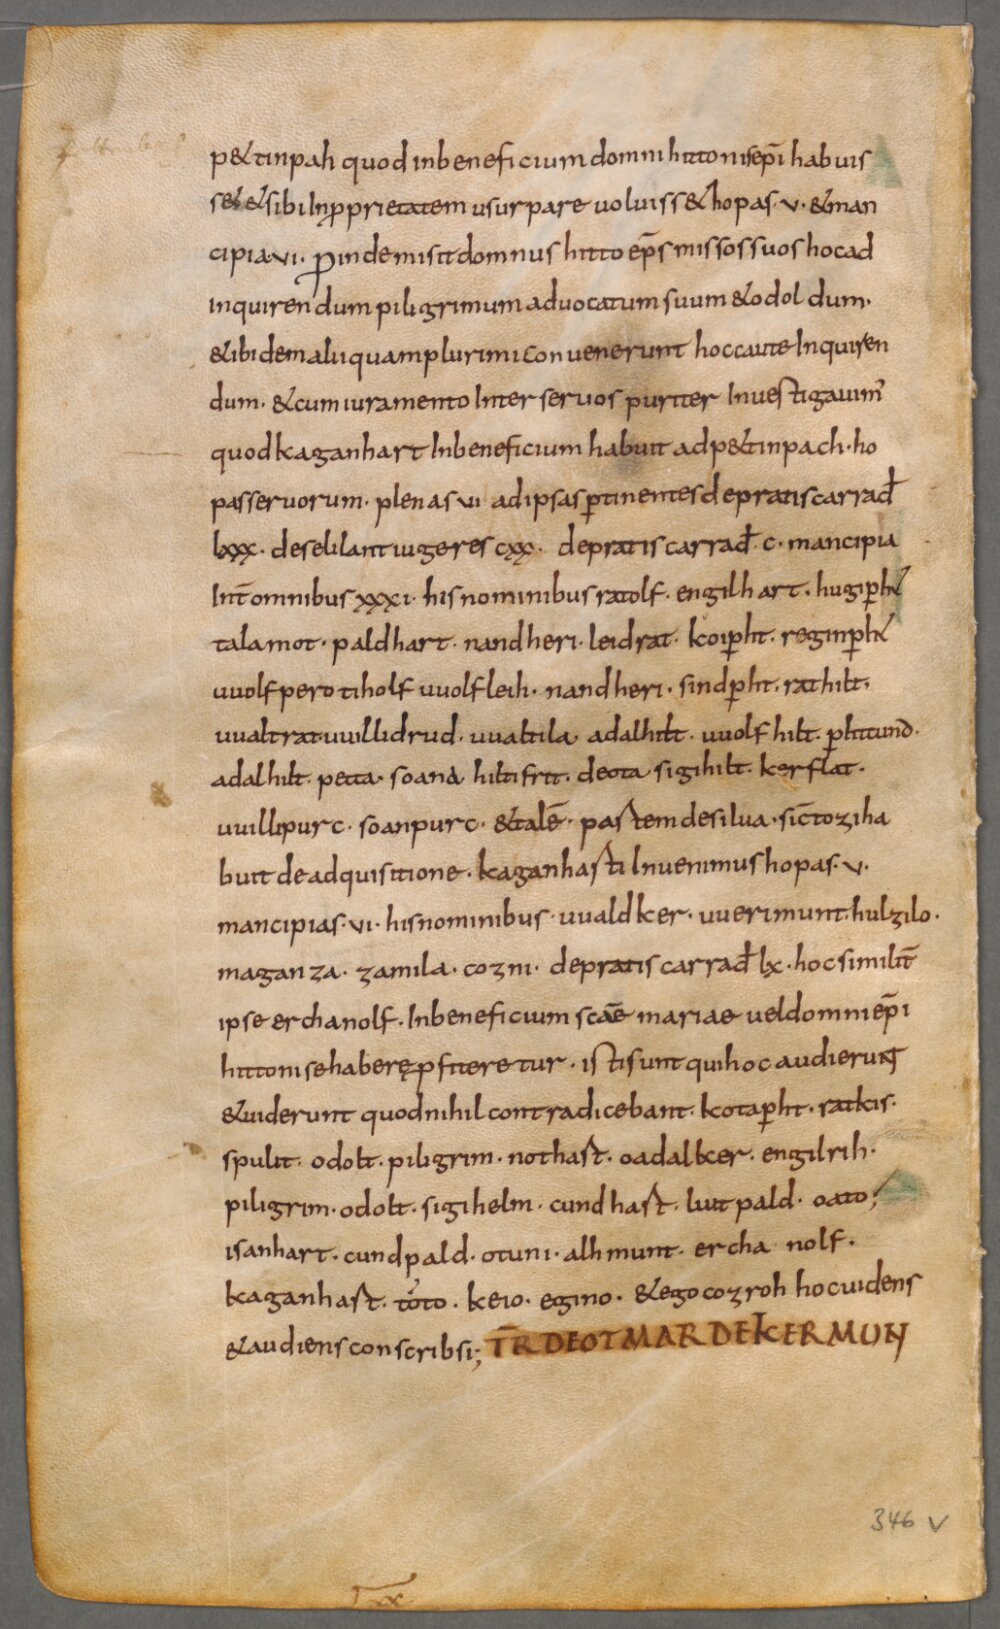 p&tinpah quod inbeneficium domni hittonis ep̄i habuis
s& &sibi Inp̱prietatem usurpare uoluiss& hopas · v · &man
cipia · vi · ꝑinde misit domnus hitto ep̄s missos suos hoc ad
inquirendum piligrimum aduocatum suum &odoldum ·
&ibidem alii quamplurimi conuenerunt hoc caute Inquiren
dum · &cum iuramento Inter seruos puriter Inuestigauim᾿
quod kaganhart Inbeneficium habuit ad p&tinpach · ho
pas seruorum · plenas vi ad ipsas ꝑtinentes de pratis carrad̄
lxxx · de selilant iugeres cxx · de pratis carrad̄ · c · mancipia
Int̄ omnibus xxxi · his nominibus ratolf · engilhart · hugiꝑht
talamot · paldhart · nandheri · leidrat · koiꝑht · reginꝑht
uuolfpero tiholf uuolfleih · nandheri · sindꝑht · rathilt ·
uualtrat uuillidrud · uualtila adalhilt · uuolfhilt · ꝑhtund ·
adalhilt · petta · soana hiltifrit · deota sigihilt · kerflat ·
uuillipurc · soanpurc · &talē · partem de silua · sic̄ tozi ha
buit de adquisitione · kaganharti Inuenimus hopas · v ·
mancipias · vi · his nominibus · uualdker · uuerimunt · hulzilo ·
maganza · zamila · cozni · de pratis carrad̄ lx · hoc similit̄
ipse erchanolf · Inbeneficium scāe mariae uel domni ep̄i
hittoni se haberę p̱fiteretur · isti sunt qui hoc audierunt
&uiderunt quod nihil contradicebant · kotaꝑht · ratkis ·
spulit · odolt · piligrim · nothart · oadalker · engilrih ·
piligrim · odolt · sigihelm · cundhart · liutpald · oato ;
isanhart · cundpald · otuni · alhmunt · erchanolf ·
kaganhart · toto · keio · egino · &ego cozroh hoc uidens
&audiens conscribsi ; TR̄ DEOTMAR DE KERMUN
346 v